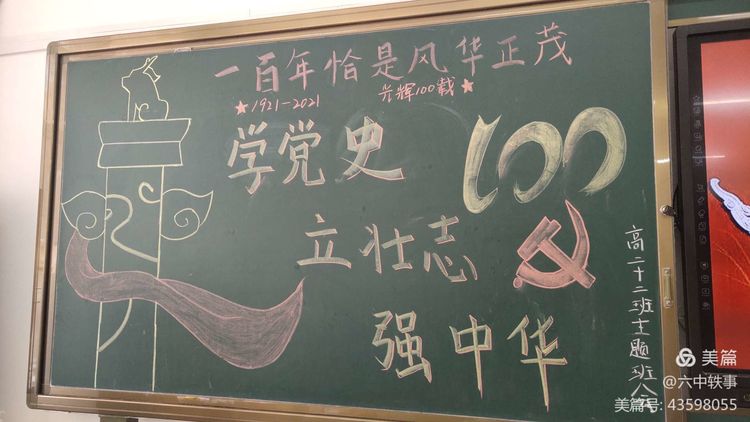 一百年恰是风华正茂
★1921-2021
光辉100载★
学党史
100
立壮志
强中华
高二十二班主题班会
美篇
@六中轶事
美篇号: 43598055